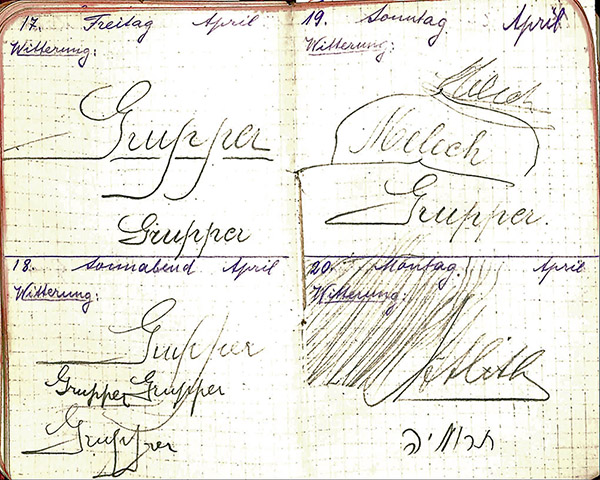 17. Freitag April
Witterung:
Grupper
Grupper
18. Sonnabend April
Witterung:
Grupper
Grupper Grupper
Grupper
19. Sonntag April
Witterung:
Meloch
Meloch
Grupper.
20. Montag. April
Witterung: